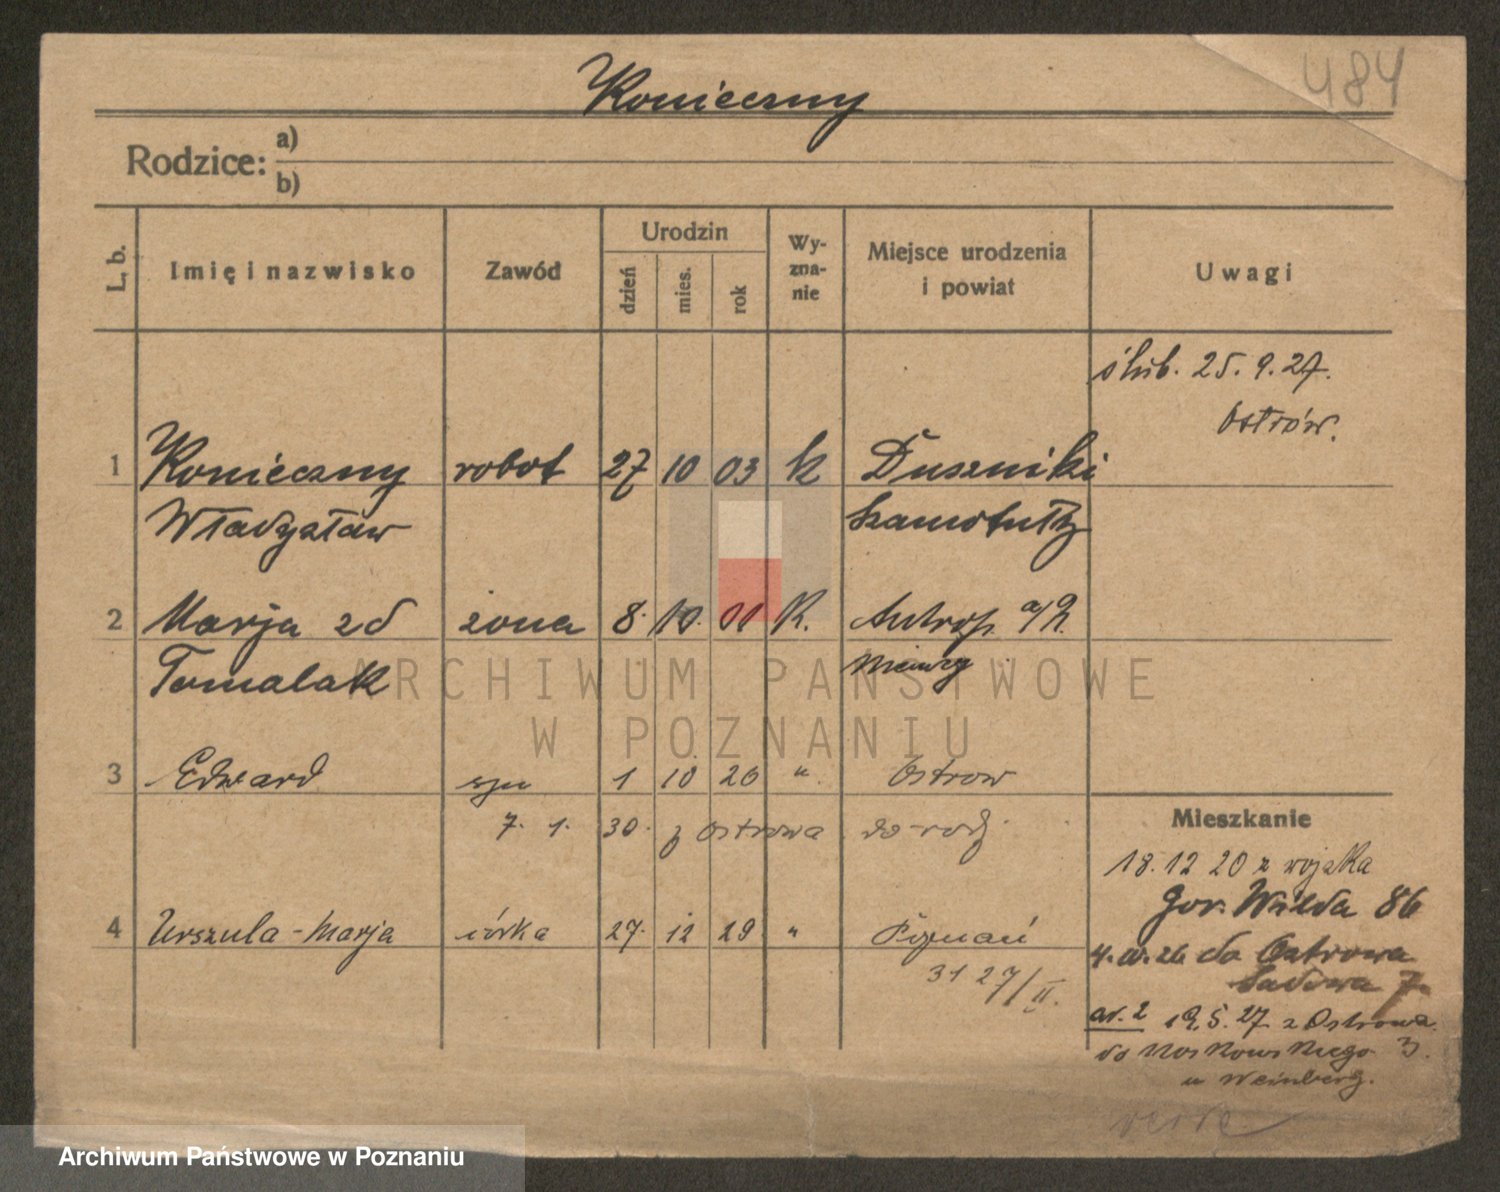 484
Konieczny
Rodzice: a)
b)
L. b. Imię i nazwisko Zawód Urodzin dzień mies. rok Wyznanie Miejsce urodzenia i powiat Uwagi
ślub. 25. 9. 27.
Ostrów.
1 Konieczny robot 27 10 03 k Duszniki
Władysław Szamotuły
2 Marja zd żona 8. 10. 01 K. Antrop a/R.
Tomalak Niemcy
3 Edward syn 1 10 26 " Ostrow
7. 1. 30. z Ostrowa do rodz.
Mieszkanie
18. 12 20 z wojska
Gór. Wilda 86
4 Urszula-Marja córka 27. 12 29 " Poznań
31 27/II.
do Ostrowa
Sadowa 7.
19. 5. 27 z Ostrowa
do Noskowskiego 3.
u Weinberg.
verte
ARCHIWUM PAŃSTWOWE
W POZNANIU
Archiwum Państwowe w Poznaniu